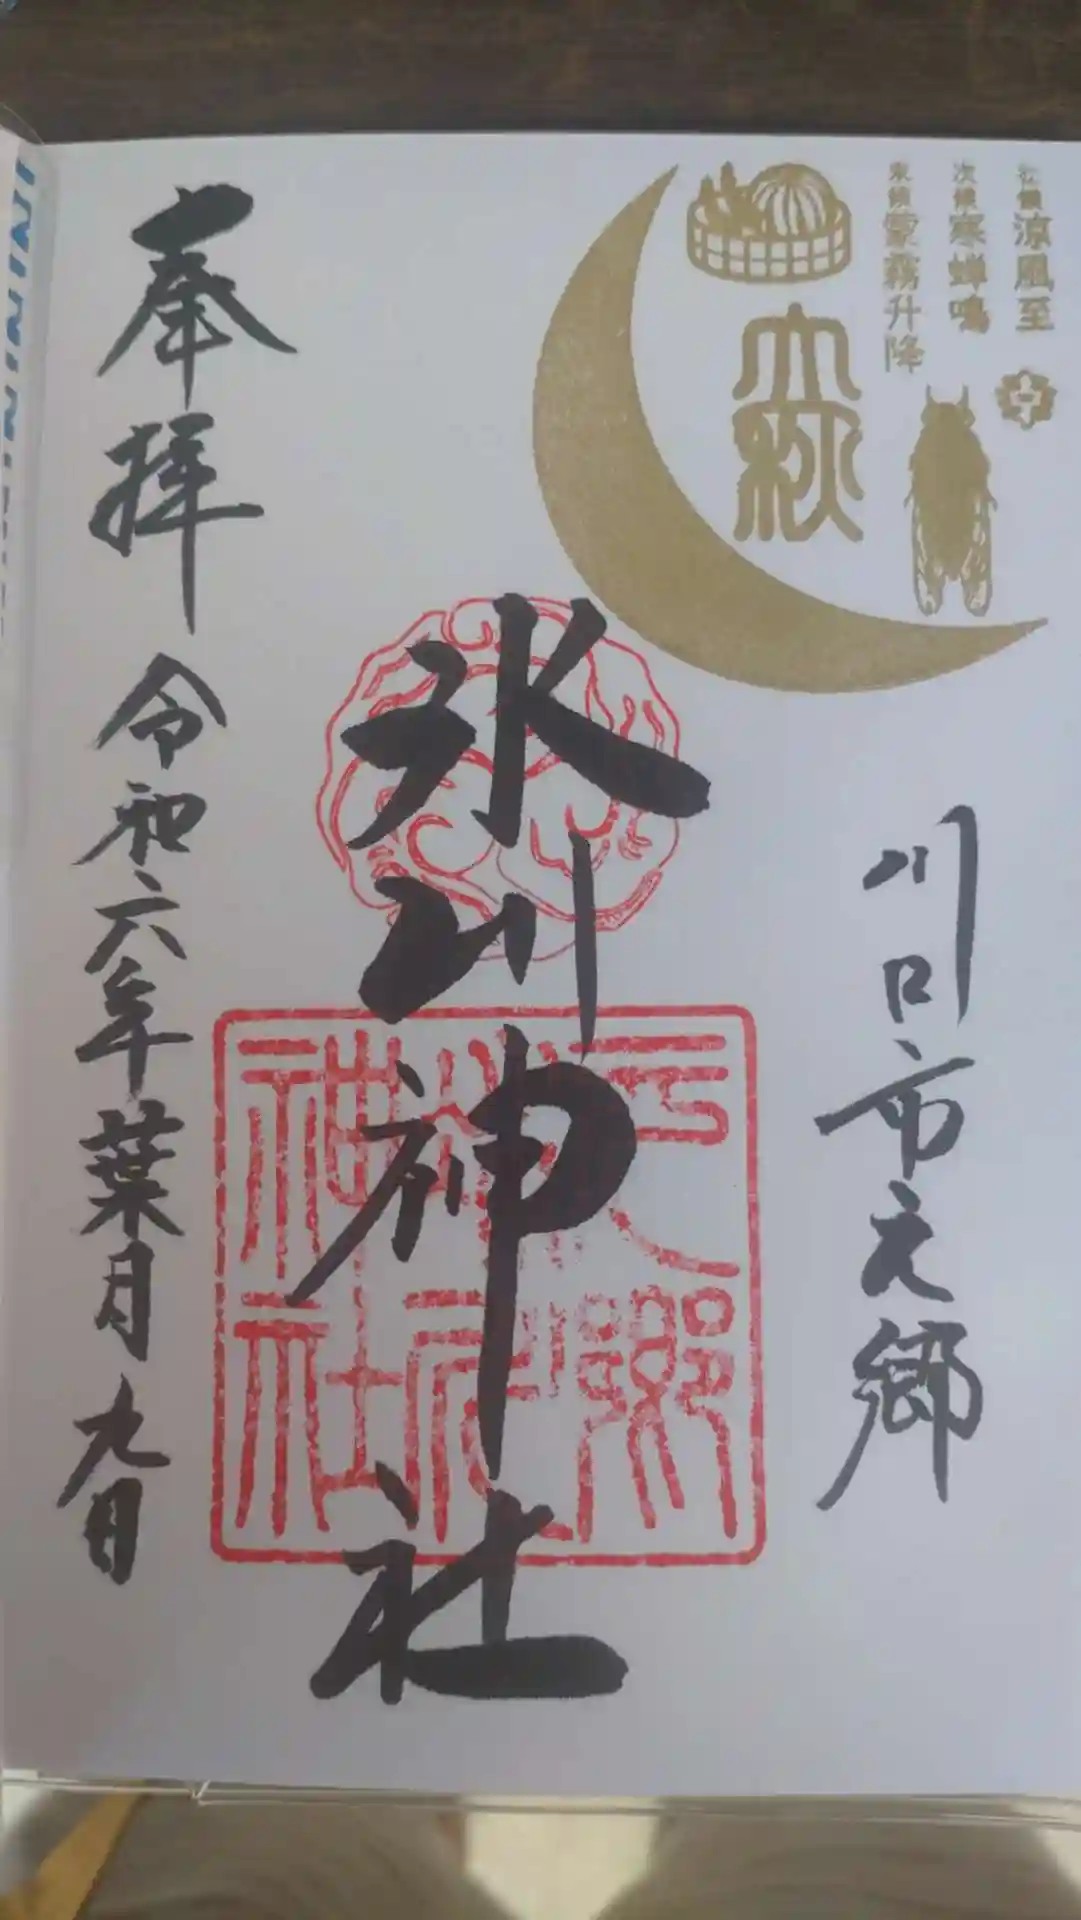 初候 涼風至
次候 寒蟬鳴
末候 蒙霧升降
立秋
川口市元郷
氷川神社
元郷氷川神社
奉拝
令和六年葉月九日